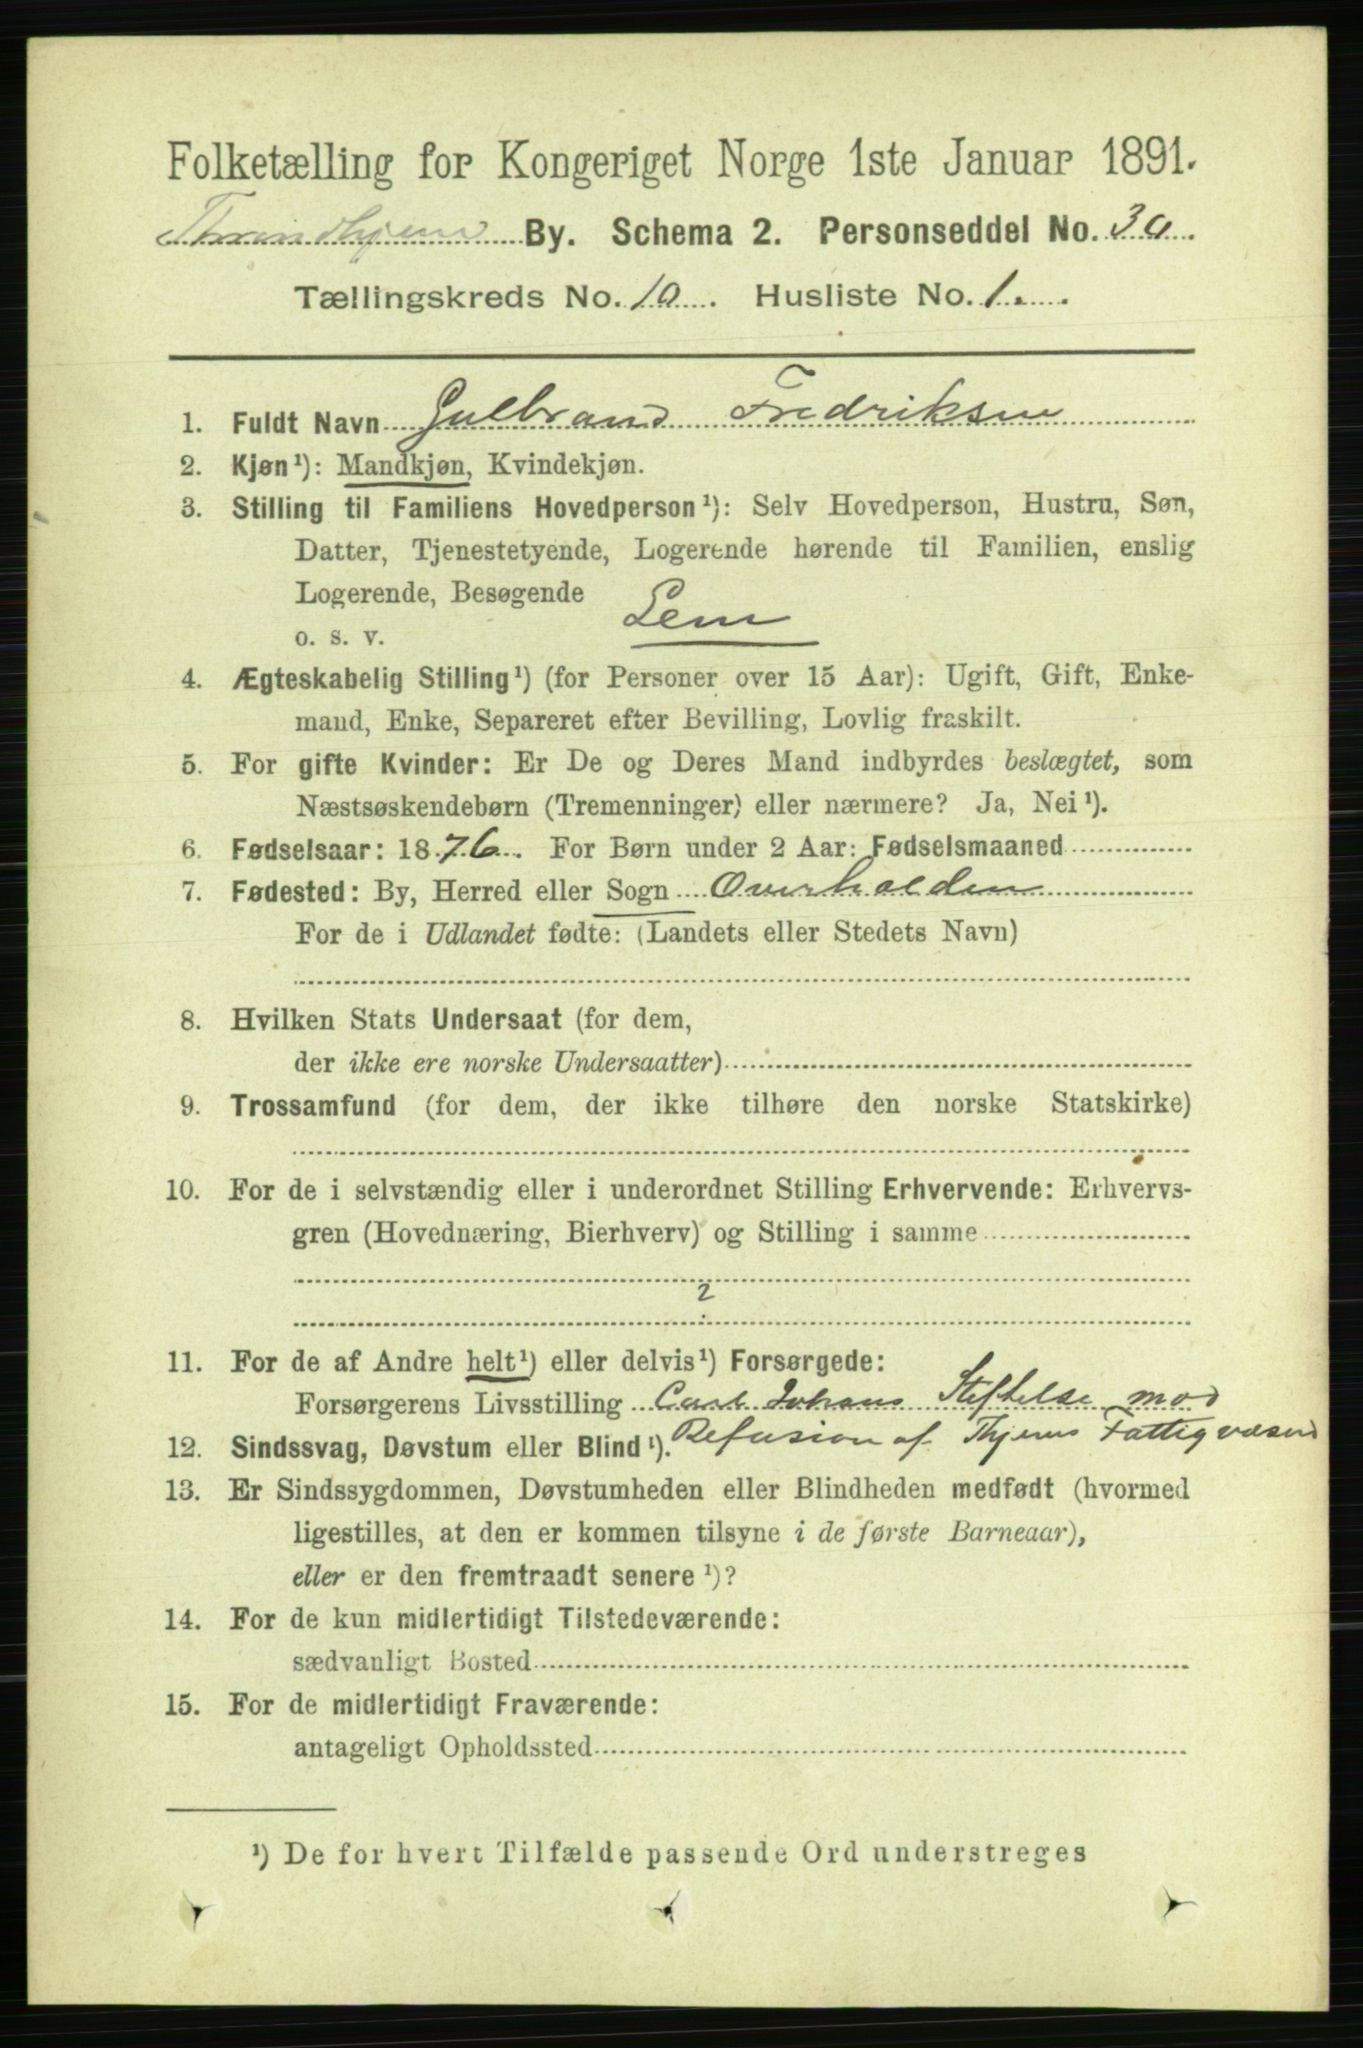 Folketælling for Kongeriget Norge 1ste Januar 1891.
Throndhjems By. Schema 2. Personseddel No. 30
Tællingskreds No. 10. Husliste No. 1.
1. Fuldt Navn Gulbrand Fredriksen
2. Kjøn¹): Mandkjøn, Kvindekjøn.
3. Stilling til Familiens Hovedperson¹): Selv Hovedperson, Hustru, Søn,
Datter, Tjenestetyende, Logerende hørende til Familien, enslig
Logerende, Besøgende
o. s. v. Lem
4. Ægteskabelig Stilling¹) (for Personer over 15 Aar): Ugift, Gift, Enke-
mand, Enke, Separeret efter Bevilling, Lovlig fraskilt.
5. For gifte Kvinder: Er De og Deres Mand indbyrdes beslægtet, som
Næstsøskendebørn (Tremenninger) eller nærmere? Ja, Nei¹).
6. Fødselsaar: 1876. For Børn under 2 Aar: Fødselsmaaned
7. Fødested: By, Herred eller Sogn Overhalden
For de i Udlandet fødte: (Landets eller Stedets Navn)
8. Hvilken Stats Undersaat (for dem,
der ikke ere norske Undersaatter)
9. Trossamfund (for dem, der ikke tilhøre den norske Statskirke)
10. For de i selvstændig eller i underordnet Stilling Erhvervende: Erhvervs-
gren (Hovednæring, Bierhverv) og Stilling i samme
2
11. For de af Andre helt¹) eller delvis¹) Forsørgede:
Forsørgerens Livsstilling Carl Johans Stiftelse mod
Refusion af Thjems Fattigvæsend
12. Sindssvag, Døvstum eller Blind¹).
13. Er Sindssygdommen, Døvstumheden eller Blindheden medfødt (hvormed
ligestilles, at den er kommen tilsyne i de første Barneaar),
eller er den fremtraadt senere¹)?
14. For de kun midlertidigt Tilstedeværende:
sædvanligt Bosted
15. For de midlertidigt Fraværende:
antageligt Opholdssted
¹) De for hvert Tilfælde passende Ord understreges